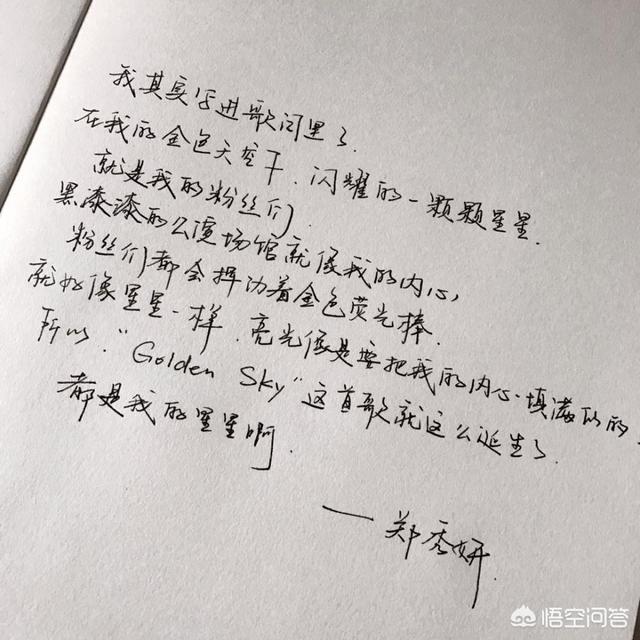 我其实写进歌词里了.
在我的金色天空下.闪耀的一颗颗星星.
就是我的粉丝们.
黑漆漆的公演场馆就像我的内心,
粉丝们都会挥动着金色荧光棒.
就好像星星一样.亮光像是要把我的内心填满似的.
所以."Golden Sky"这首歌就这么诞生了.
都是我的星星啊.
——郑秀妍.
悟空问答